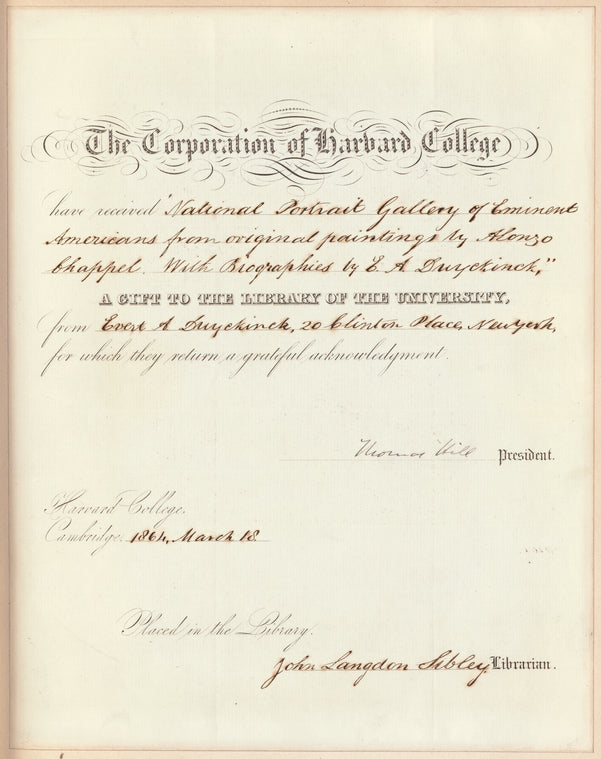 The Corporation of Harvard College
have received "National Portrait Gallery of Eminent
Americans from original paintings by Alonzo
Chappel. With Biographies by E. A. Duyckinck,"
A GIFT TO THE LIBRARY OF THE UNIVERSITY,
from Evert A Duyckinck, 20 Clinton Place, New York,
for which they return a grateful acknowledgment.
Thomas Hill President.
Harvard College.
Cambridge. 1864, March 18.
Placed in the Library.
John Langdon Sibley, Librarian.